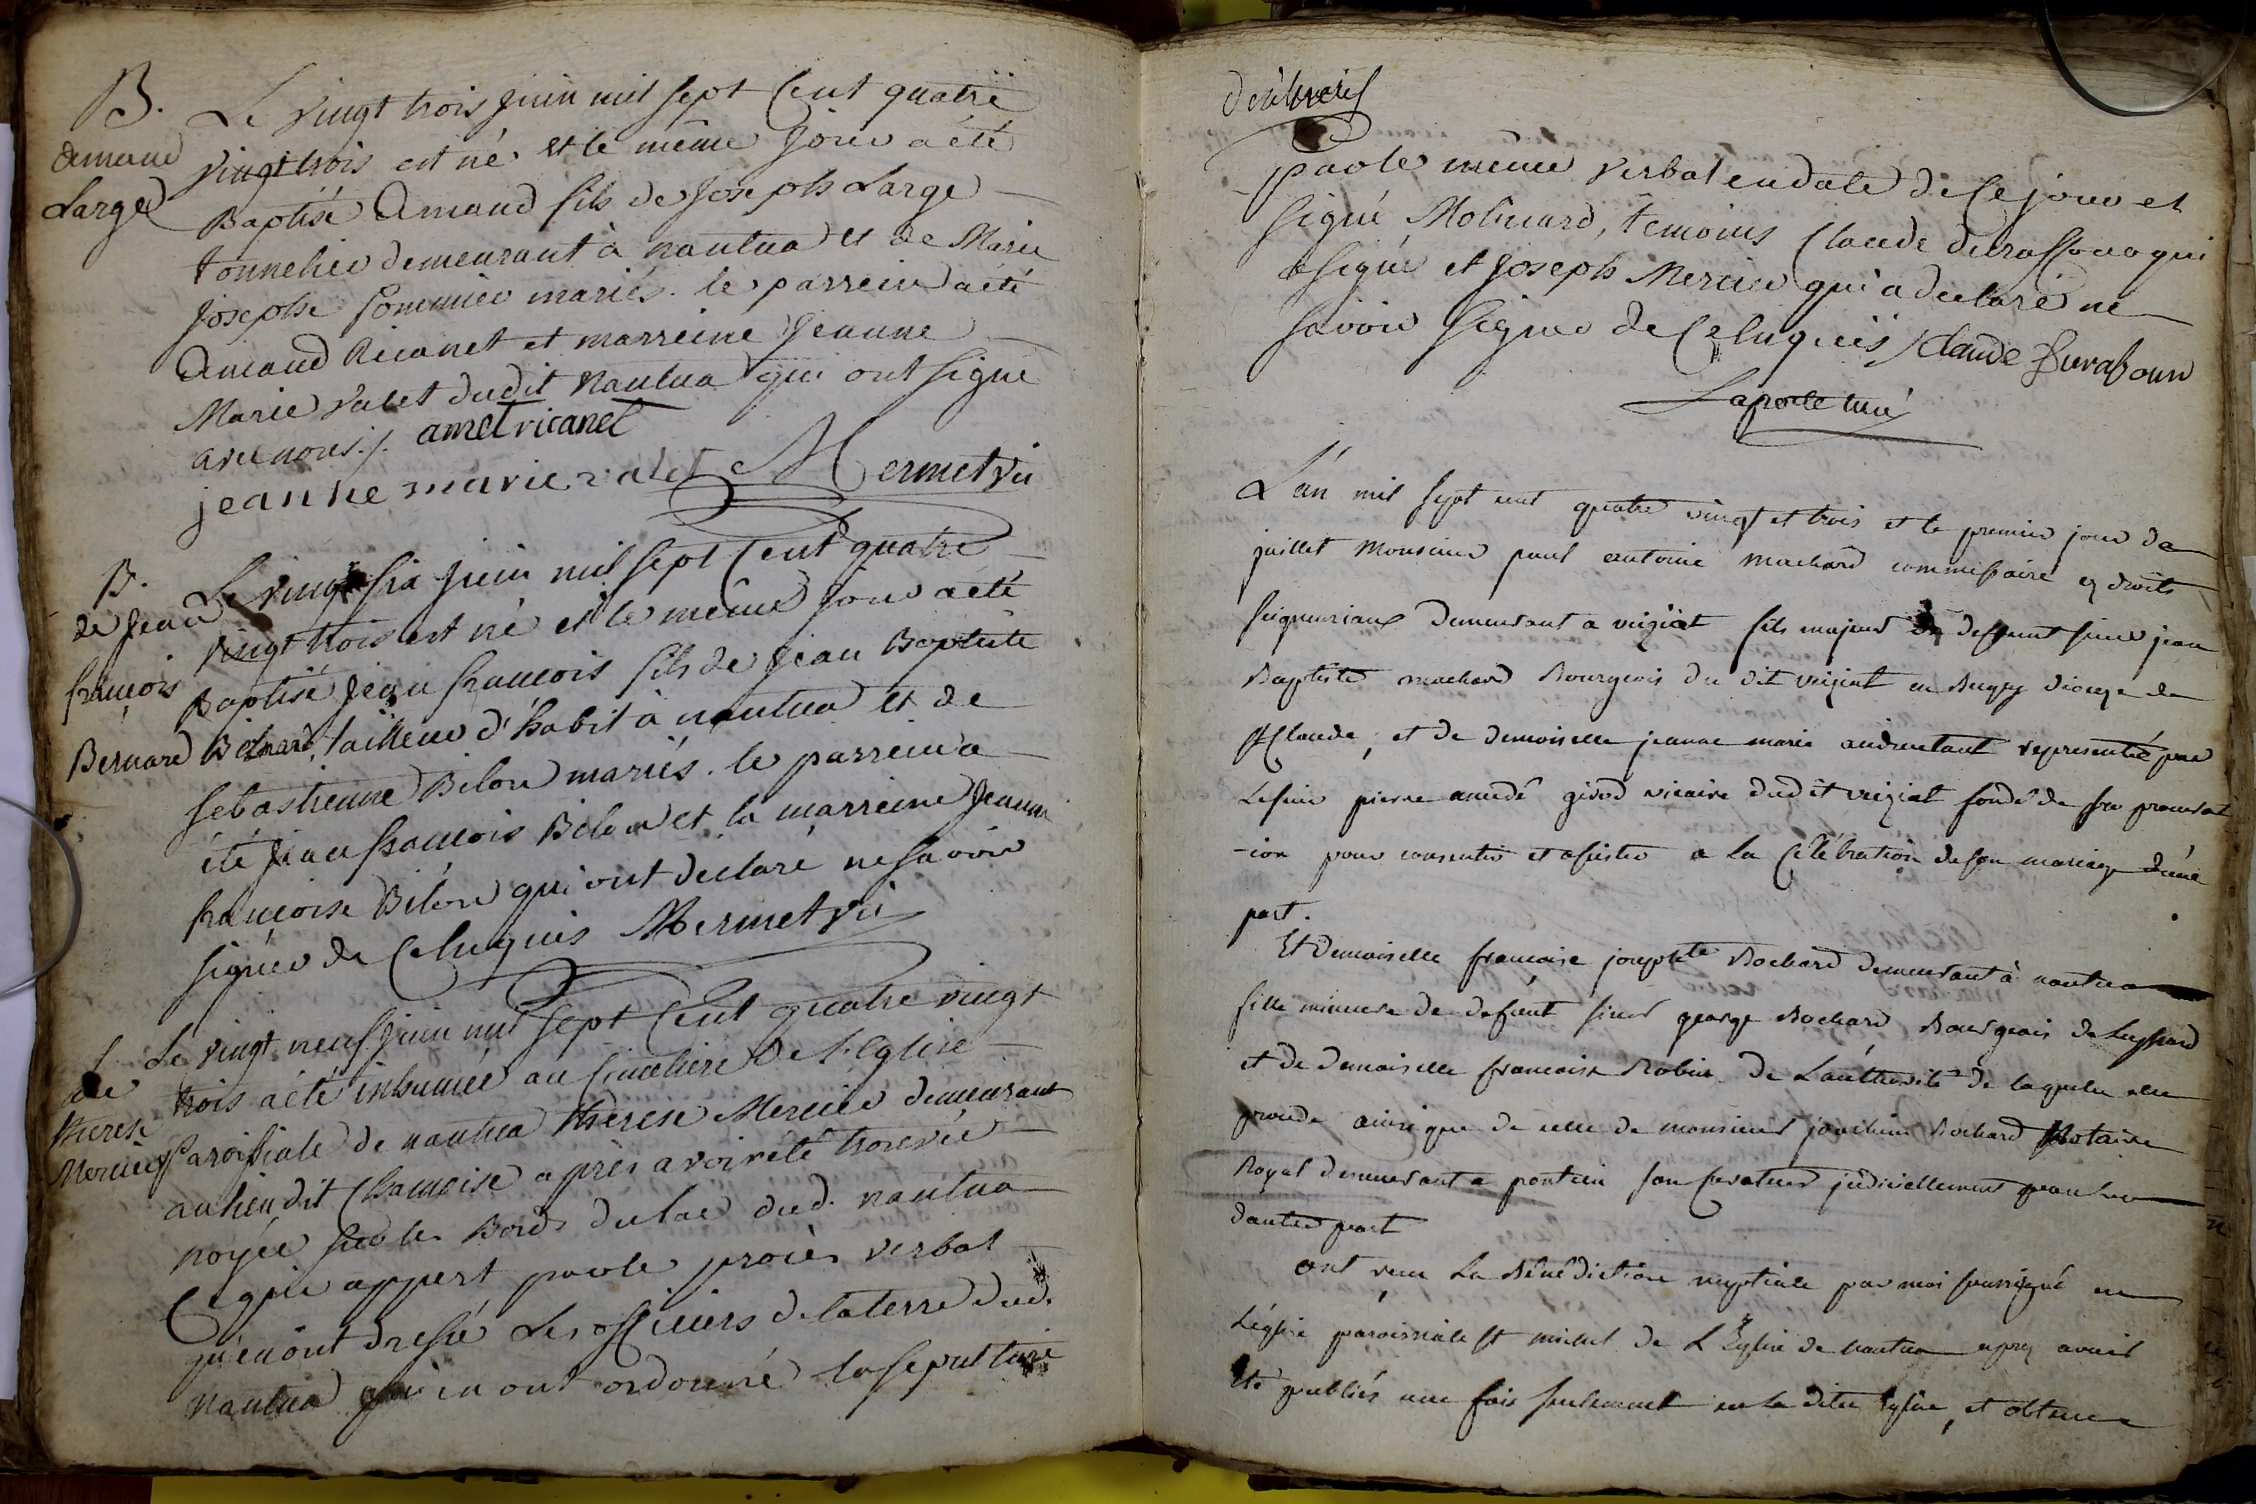 B.
Amand
Large
Le vingt trois juin mil sept Cent quatre
vingt trois est né et le même jour a été
Baptisé Amand fils de Joseph Large
tonnelier demeurant à nantua et de Marie
Josephe sommier mariés. le parrein a été
Amand Ricanet et marreine Jeanne
Marie valet dudit Nantua qui ont signé
avec nous ./. amet ricanet
jeanne marie valet Mermet vic
B.
de Jean
françois
Bernard
Le vingt six juin mil sept Cent quatre
vingt trois est né et le même jour a été
Baptisé Jean francois fils de Jean Baptiste
Bernard, tailleur d'habit à nantua et de
sebastienne Bilon mariés. le parrein a
été Jean francois Bilon et la marreine Jeanne
francoise Bilon qui ont declaré ne savoir
signer de Ce enquis Mermet vic
S.
de
therese
Mercier
Le vingt neuf juin mil sept Cent quatre vingt
trois a été inhumée au Cimetiere de l'Eglise
Paroissiale de nantua therese Mercier demeurant
au lieu dit Chamoise après avoir été trouvée
noyée sur les Bords du lac dud. nantua
Ce qui appert par le procès verbal
qu'en ont dressé les officiers de la terre dud.
Nantua qui en ont ordonné la sepulture
par le même verbal en date de Ce jour et
signé Molinard, temoins Claude
a signé et Joseph Mercier qui a declaré ne
savoir signer de Ce enquis / Claude
Laporte curé
L'an mil sept cent quatre vingt et trois et le premier jour de
juillet Monsieur paul antoine machard commissaire es droits
seigneuriaux demeurant a veiziat fils majeur de deffunt sieur jean
Baptiste machard Bourgeois du dit veiziat en Bugey diocese de
St Claude, et de demoiselle jeanne marie representée par
Le sieur pierre amedé girod vicaire dudit veiziat fondé de sa procurat
-ion pour consentir et assister a la Célébration de son mariage d'une
part.
Et Demoiselle francoise josephte Bochard demeurant à nantua
fille mineure de defunt sieur george Bochard Bourgeois de
et de demoiselle francoise Robin de L'authorité de laquelle elle
procede ainsi que de celle de monsieur joachim Bochard Notaire
Royal demeurant a poncin son Curateur judiciellement
d'autre part
ont reçu La Bénédiction nuptiale par moi soussigné en
L'église paroissiale St michel de L'Eglise de nantua après avoir
été publiés une fois seulement en la dite Eglise, et obtenu